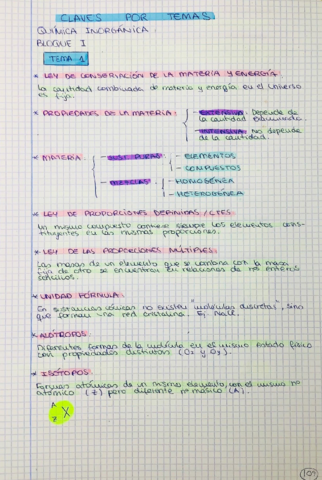 CLAVES POR TEMAS.
QUÍMICA INORGÁNICA.
BLOQUE I
TEMA 1
* LEY DE CONSERVACIÓN DE LA MATERIA Y ENERGÍA:
La cantidad combinada de materia y energía en el Universo
es fija.
* PROPIEDADES DE LA MATERIA:
- EXTENSIVA: Depende de
la cantidad
- INTENSIVA: No depende
de la cantidad.
* MATERIA:
- SUST. PURAS:
- ELEMENTOS
- COMPUESTOS
- MEZCLAS:
- HOMOGÉNEA
- HETEROGÉNEA
* LEY DE PROPORCIONES DEFINIDAS / CTES.:
Un mismo compuesto contiene siempre los elementos cons-
tituyentes en las mismas proporciones.
* LEY DE LAS PROPORCIONES MÚLTIPLES:
Las masas de un elemento que se combina con la masa
fija de otro se encuentran en relaciones de nos enteros
* UNIDAD FÓRMULA:
En sistemas iónicos no existen "moléculas discretas", sino
que forman una red cristalina. Ej NaCl.
* ALÓTROPOS:
Diferentes formas de la molécula en el mismo estado físico
con propiedades distintas (O2 y O3).
* ISÓTOPOS:
Formas atómicas de un mismo elemento, con el mismo nº
atómico (Z) pero diferente nº másico (A).
A
X
Z